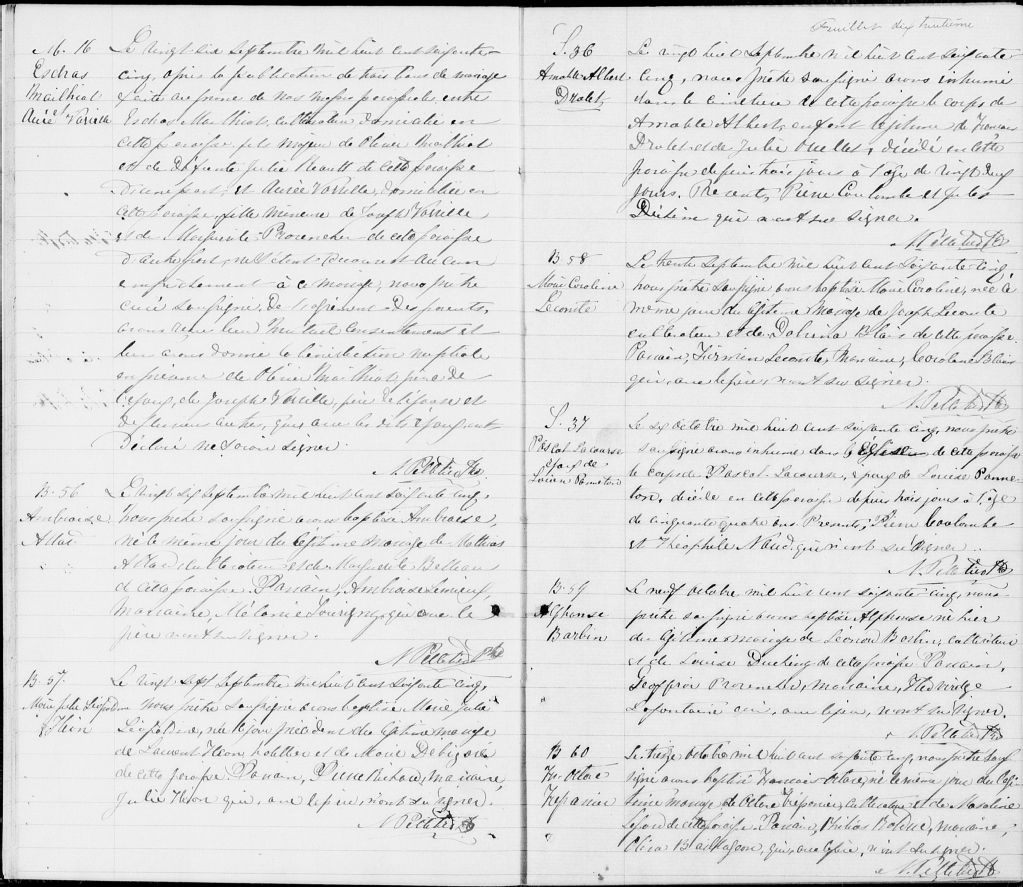 M. 16
Esdras
Mailhiot
Aurée Vanille
Le vingt six Septembre mil huit cent soixante
cinq, après la publication de trois bans de mariage
faite au prône de nos messes paroissiales, entre
Esdras Mailhiot, cultivateur domicilié en
cette paroisse fils majeur de Olivier Mailhiot
et de Défunte Julie de cette paroisse
d'une part, et Aurée domiciliée en
cette paroisse, fille mineure de Joseph
et de Marguerite Provencher de cette paroisse
d'autre part, ne s'étant découvert aucun
empêchement à ce mariage, nous prêtre
curé soussigné, de l'agrément des parents,
avons reçu leur mutuel consentement et
leur avons donné la bénédiction nuptiale
en présence de Olivier Mailhiot, père de
l'époux, de Joseph père de l'épouse et
de plusieurs autres, qui ont
déclaré ne savoir signer.
N. Pelletier Ptre
B. 56
Ambroise
Allard
Le vingt sept Septembre mil huit cent soixante cinq,
nous prêtre soussigné avons baptisé Ambroise,
né le même jour du légitime mariage de Mathias
Allard cultivateur et de
de cette paroisse. Parrain, Ambroise Lemieux,
marraine, Mélanie qui, avec le
père n'ont su signer.
N. Pelletier Ptre
B. 57.
Marie Julie
Le vingt sept Septembre mil huit cent soixante cinq,
nous prêtre soussigné avons baptisé Marie Julie
née le jour précédent du légitime mariage
de Laurent et de Marie
de cette paroisse. Parrain, Pierre marraine,
Julie qui, avec le père, n'ont su signer.
N. Pelletier Ptre
Feuillet dix huitième
S. 36
Amable Albert
Drolet
Le vingt huit Septembre mil huit cent soixante
cinq, nous prêtre soussigné avons inhumé
dans le cimetière de cette paroisse le corps de
Amable Albert, enfant légitime de François
Drolet et de Julie Ouellet, décédé en cette
paroisse depuis trois jours à l'âge de vingt deux
jours. Présents, Pierre Coulombe et Jules
qui n'ont su signer.
N. Pelletier Ptre
B. 58
Marie Caroline
Lecomte
Le trente Septembre mil huit cent soixante cinq,
nous prêtre soussigné avons baptisé Marie Caroline, née le
même jour du légitime mariage de Joseph Lecomte
cultivateur et de Dalvina Blais de cette paroisse.
Parrain, Firmin Lecomte, Marraine, Caroline Blais
qui, avec le père, n'ont su signer.
N. Pelletier Ptre
S. 37
Pascal Lacourse
époux de
Louise Panneton
Le six octobre mil huit cent soixante cinq, nous prêtre
soussigné avons inhumé dans l'Eglise de cette paroisse
le corps de Pascal Lacourse, époux de Louise Panne-
ton, décédé en cette paroisse depuis trois jours à l'âge
de cinquante quatre ans. Présents, Pierre Coulombe
et Théophile Naud, qui n'ont su signer.
N. Pelletier Ptre
B. 59
Alphonse
Barbin
Le neuf octobre mil huit cent soixante cinq, nous
prêtre soussigné avons baptisé Alphonse né hier
du légitime mariage de Léonon Barbin, cultivateur
et de Louise de cette paroisse. Parrain,
Geoffroi Provencher, marraine, Hedwidge
Lafontaine qui, avec le père, n'ont su signer.
N. Pelletier Ptre
B. 60
Frs. Octave
Trépanier
Le treize octobre mil huit cent soixante cinq, nous prêtre sous-
signé avons baptisé François Octave, né le même jour du légi-
time mariage de Octave Trépanier, cultivateur et de Marceline
de cette paroisse. Parrain, Philias marraine,
qui, avec le père, n'ont su signer.
N. Pelletier Ptre